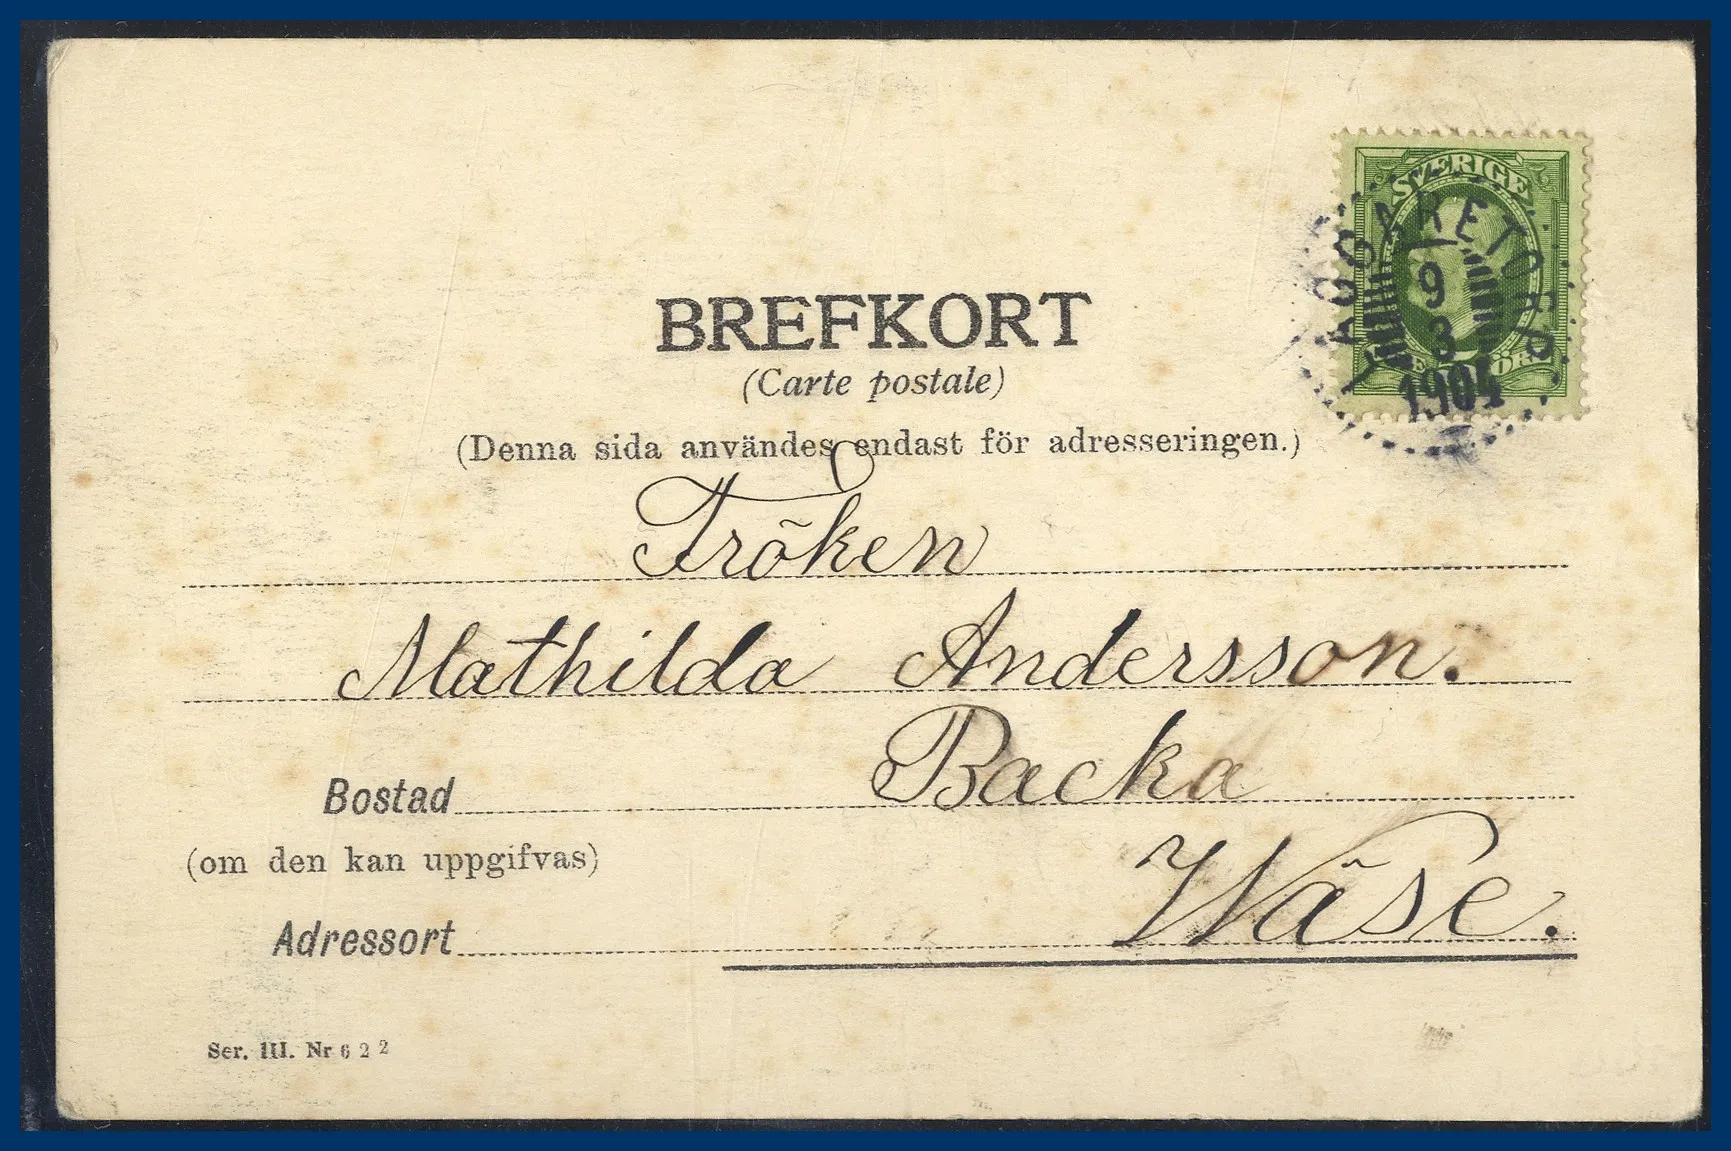 SVERIGE
TAGGARETORP
9
3
1904
BREFKORT
(Carte postale)
(Denna sida användes endast för adresseringen.)
Fröken
Mathilda Andersson.
Bostad Backa
(om den kan uppgifvas)
Adressort Wäse.
Ser. III. Nr 622